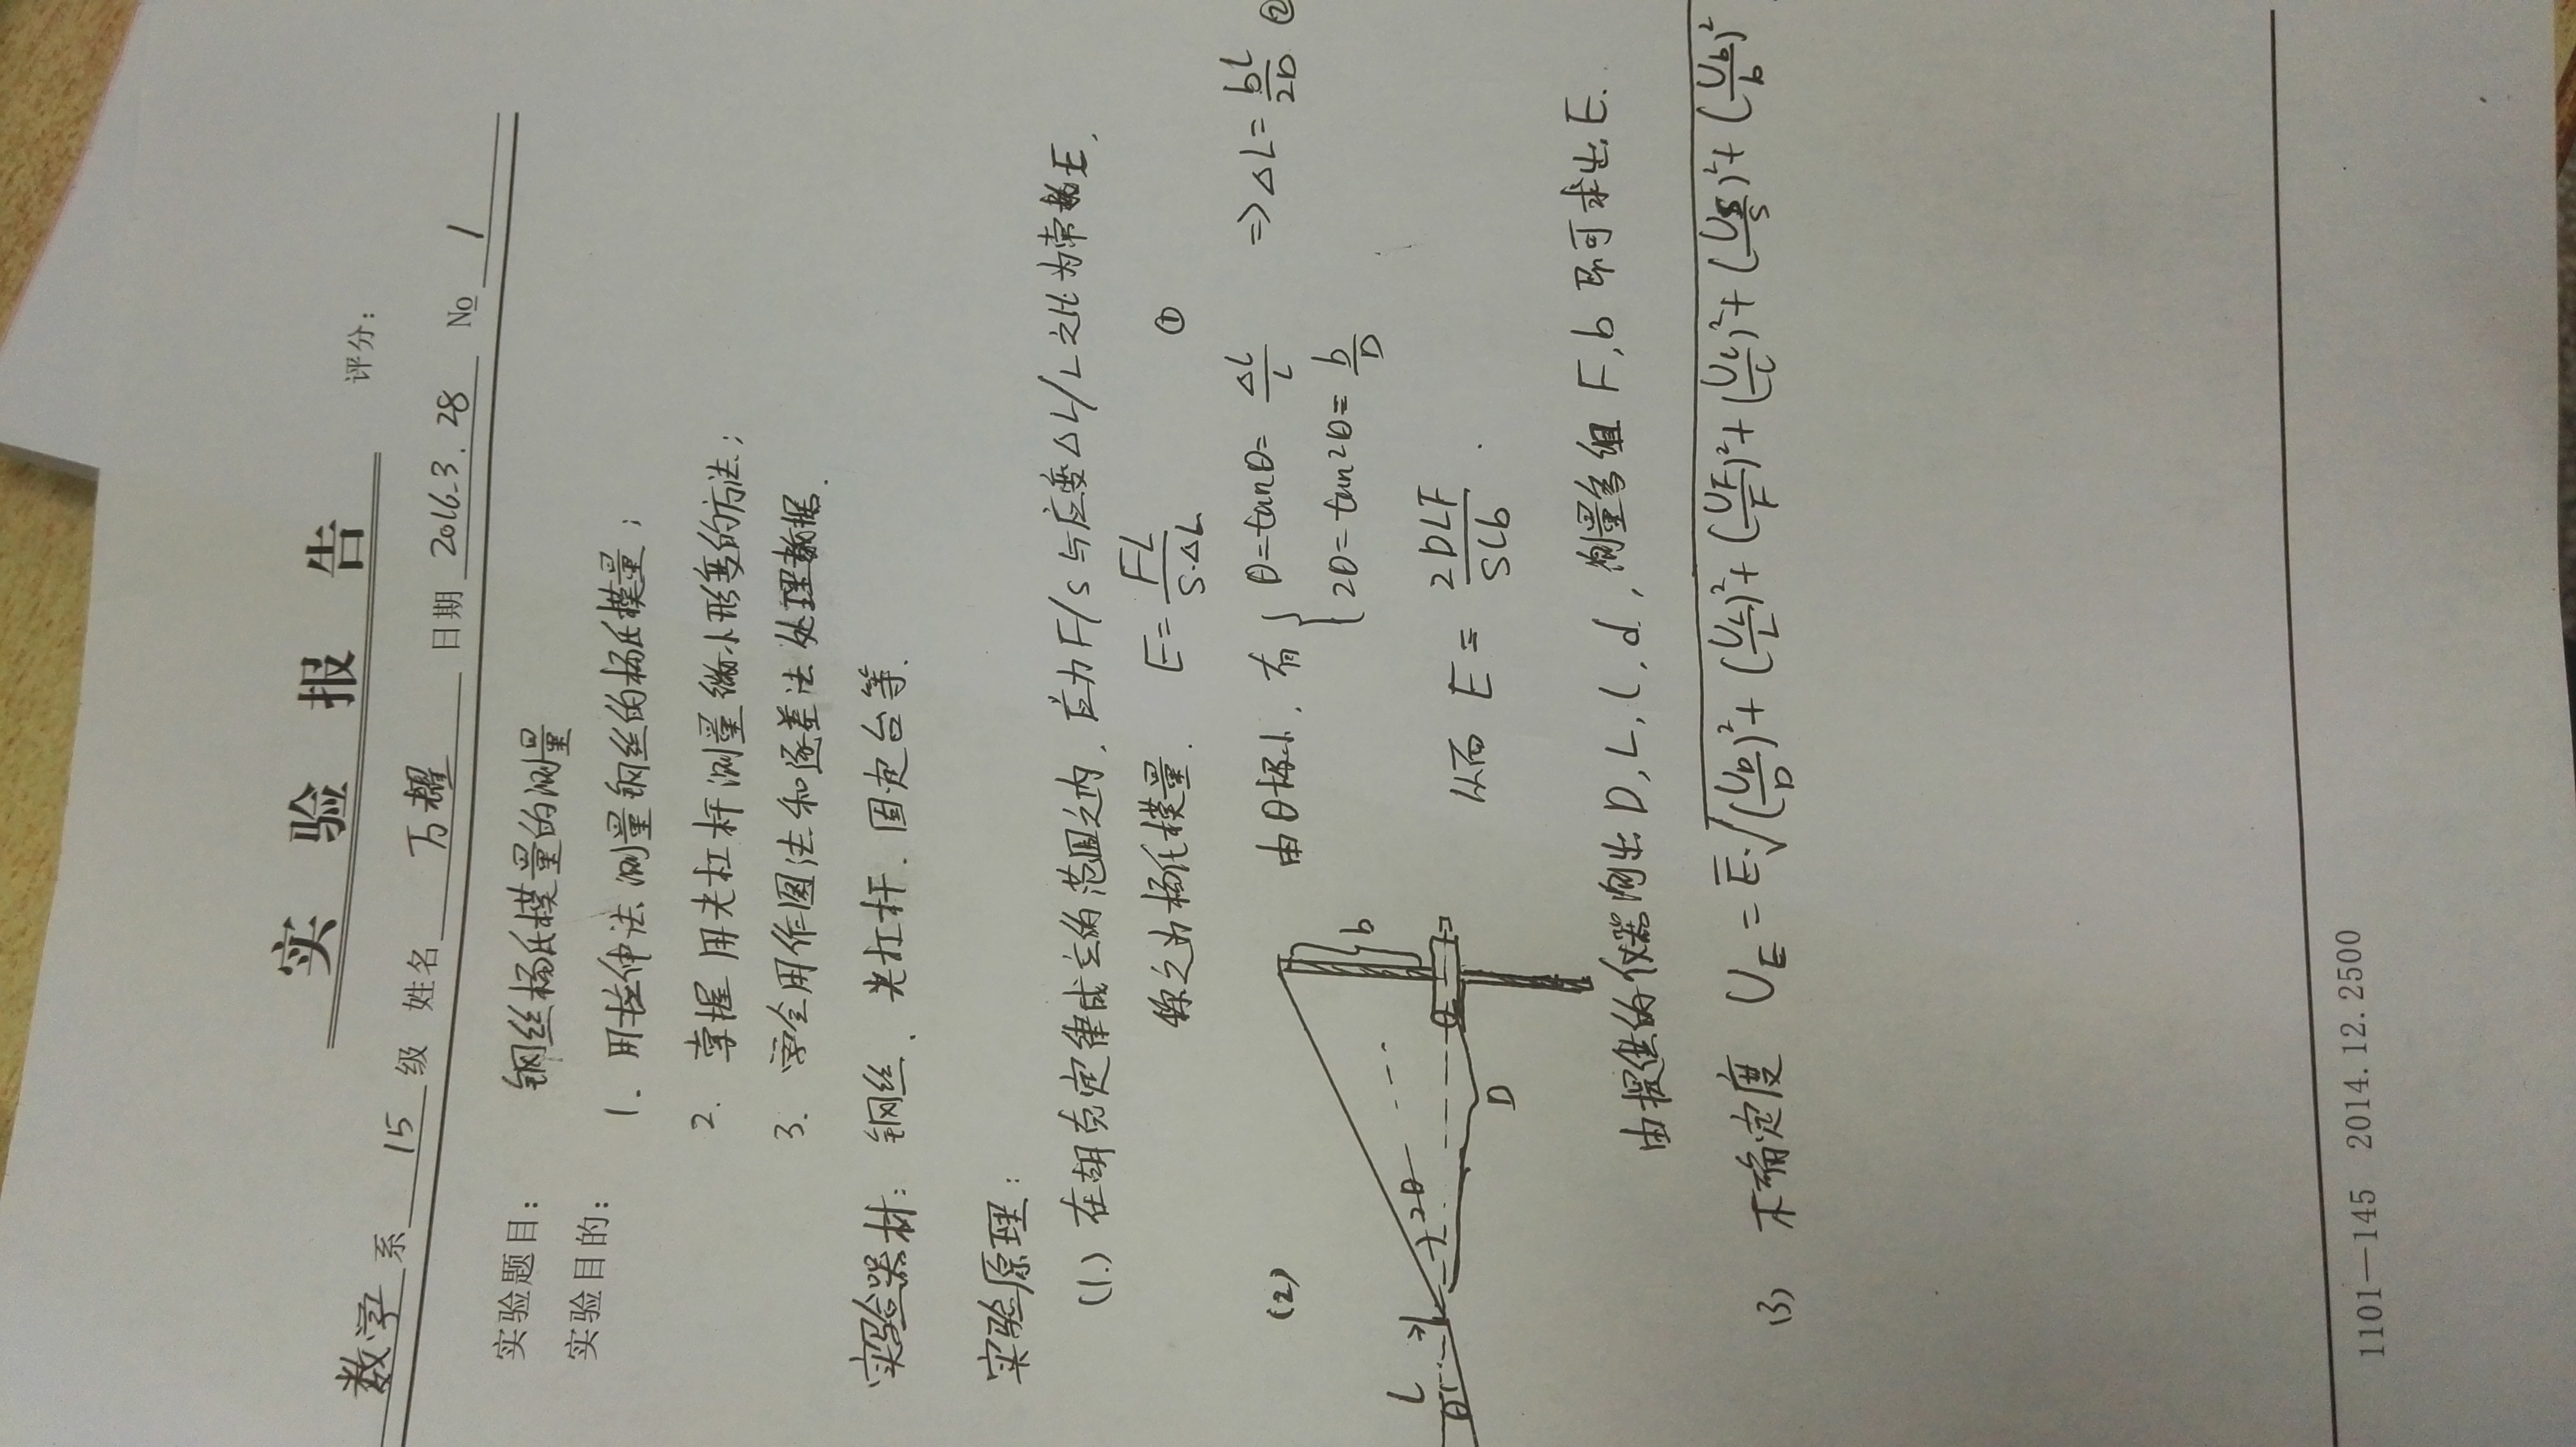 实 验 报 告
评分:
数学 系 15 级 姓名 万耀 日期 2016.3.28 № 1
实验题目: 钢丝杨氏模量的测量
实验目的: 1. 用拉伸法测量钢丝的杨氏模量;
2. 掌握用光杠杆测量微小形变的方法;
3. 学会用作图法和逐差法处理数据.
实验器材: 钢丝、光杠杆、固定台等.
实验原理:
(1.) 在胡克定律成立的范围之内,应力F/S与应变△L/L之比为常数E,
称之为杨氏模量. E=FL/S·△L ①
(2) 由θ极小,有 { θ=tanθ=△L/l
2θ=tan2θ=b/D ⇒△L=bl/2D ②
l θ 2θ D b
从而 E = 2DLF/Slb .
由提供的仪器测出D,L,l,d,测量多组F,b即可求出E.
(3) 不确定度 U_E=E̅·√(U_D/D)²+(U_L/L)²+(U_F/F)²+(U_l/l)²+(U_S/S)²+(U_b/b)²
1101—145 2014.12.2500